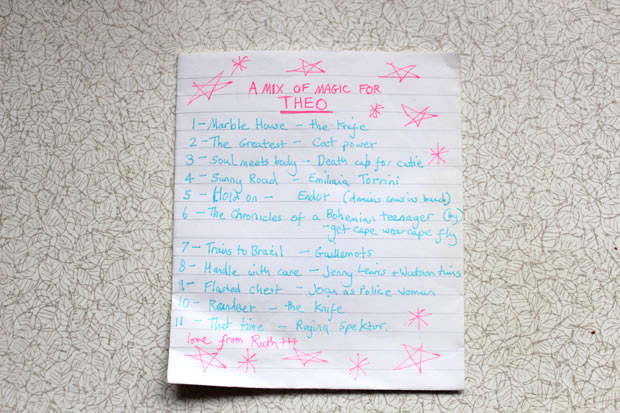 A MIX OF MAGIC FOR
THEO
1 - Marble House - the Knife
2 - The Greatest - Cat power
3 - Soul meets body - Death cab for cutie
4 - Sunny Road - Emiliana Torrini
5 - Hold on - Endor (damiens cousins band)
6 - The Chronicles of a Bohemian teenager (by)
- get cape wear cape fly
7 - Trains to Brazil - Guillemots
8 - Handle with care - Jenny Lewis + Watson twins
9 - Flushed chest - Joan as Police woman
10 - - the Knife
11 - That time - Regina Spektor.
love from Ruth +++